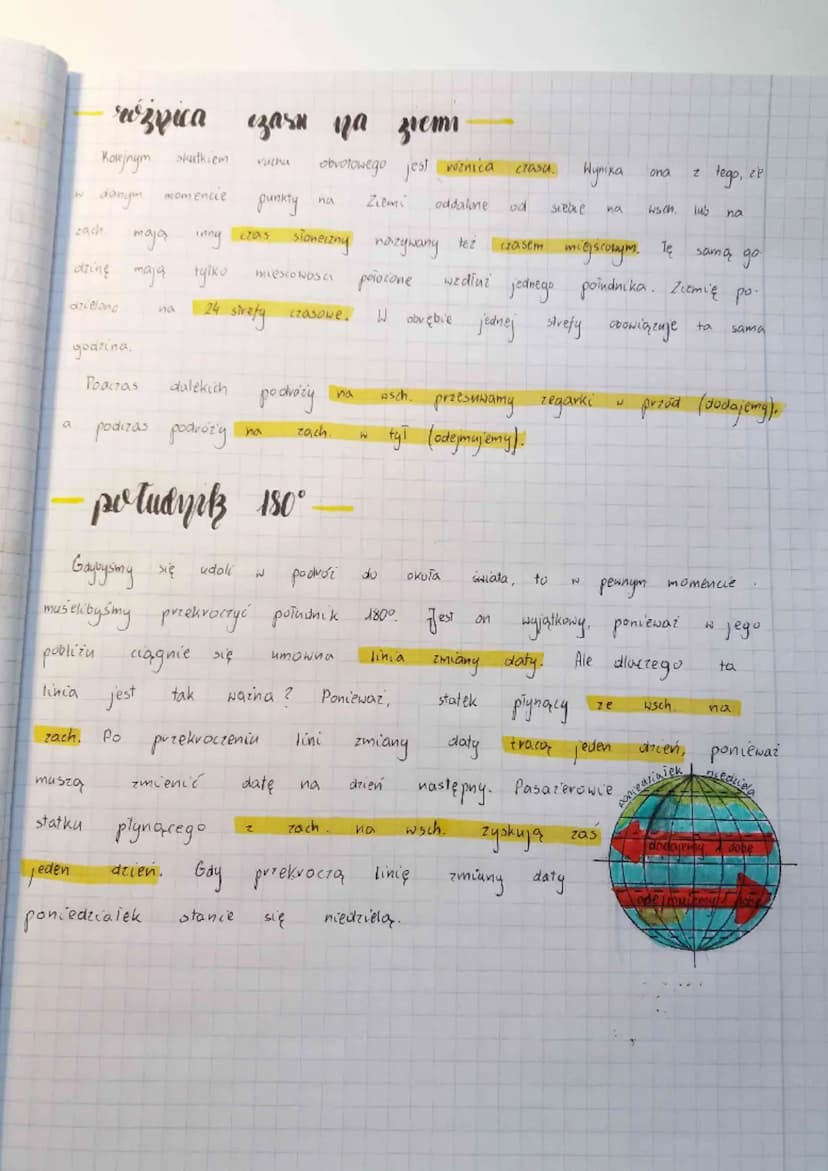 różnica czasu na ziemi
Kolejnym skutkiem ruchu obrotowego jest różnica czasu. Wynika ona z tego, że
w danym momencie punkty na Ziemi oddalone od siebie na wsch. lub na
zach. mają inny czas słoneczny nazywany też czasem miejscowym. Tę samą go-
dzinę mają tylko miejscowości położone wzdłuż jednego południka. Ziemię po-
dzielono na 24 strefy czasowe. W obrębie jednej strefy obowiązuje ta sama
godzina.
Podczas dalekich podróży na wsch. przesuwamy zegarki w przód (dodajemy),
a podczas podróży na zach. w tył (odejmujemy).
południk 180°
Gdybyśmy się udali w podróż do okoła świata, to w pewnym momencie
musielibyśmy przekroczyć południk 180°. Jest on wyjątkowy, ponieważ w jego
pobliżu ciągnie się umowna linia zmiany daty. Ale dlaczego ta
linia jest tak ważna? Ponieważ, statek płynący ze wsch. na
zach. Po przekroczeniu lini zmiany daty tracą jeden dzień, ponieważ
muszą zmienić datę na dzień następny. Pasażerowie
statku płynącego z zach. na wsch. zyskują zaś
jeden dzień. Gdy przekroczą linię zmiany daty
poniedziałek stanie się niedzielą.
poniedziałek niedziela
dodajemy 1 dobę
odejmujemy 1 dobę